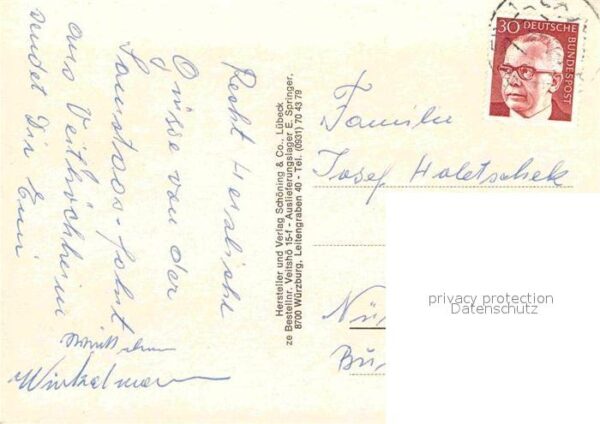 Recht Herzliche
Grüsse von der
Samstags-fahrt
aus Veitshöchheim
sendet Dir Euer
Winkelmann
Hersteller und Verlag Schöning & Co., Lübeck
ze Bestellnr. Veitshö 15-f - Auslieferungslager E. Springer,
8700 Würzburg, Leitengraben 40 - Tel. (0931) 70 43 79
30 DEUTSCHE
BUNDESPOST
Familie
Josef Holetschek
Nü
Bu
privacy protection
Datenschutz